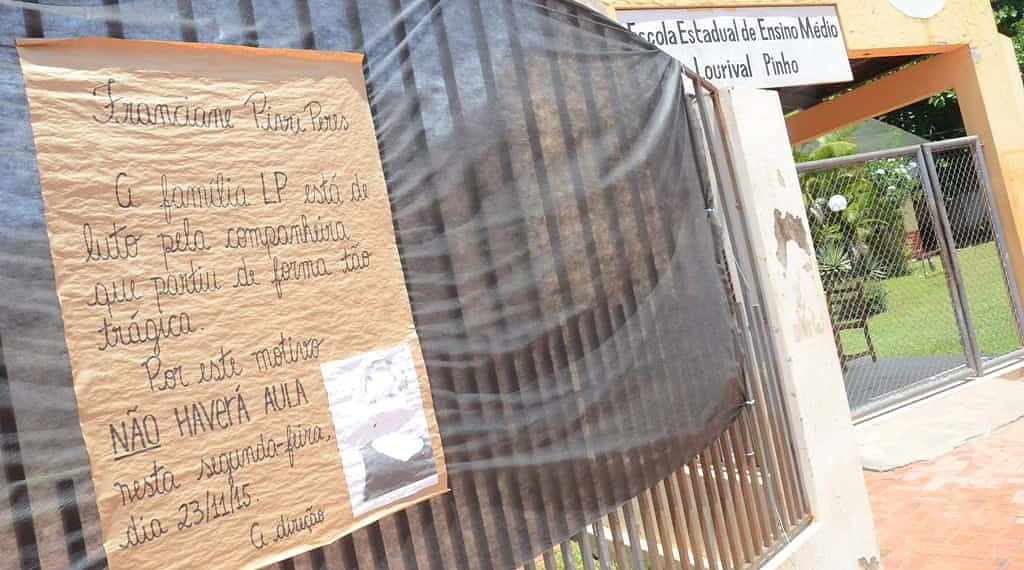 Franciane Pisvi Peres
A família LP está de
luto pela companheira
que partiu de forma tão
trágica.
Por este motivo
NÃO HAVERÁ AULA
nesta segunda-feira,
dia 23/11/15.
A direção
Escola Estadual de Ensino Médio
Lourival Pinho